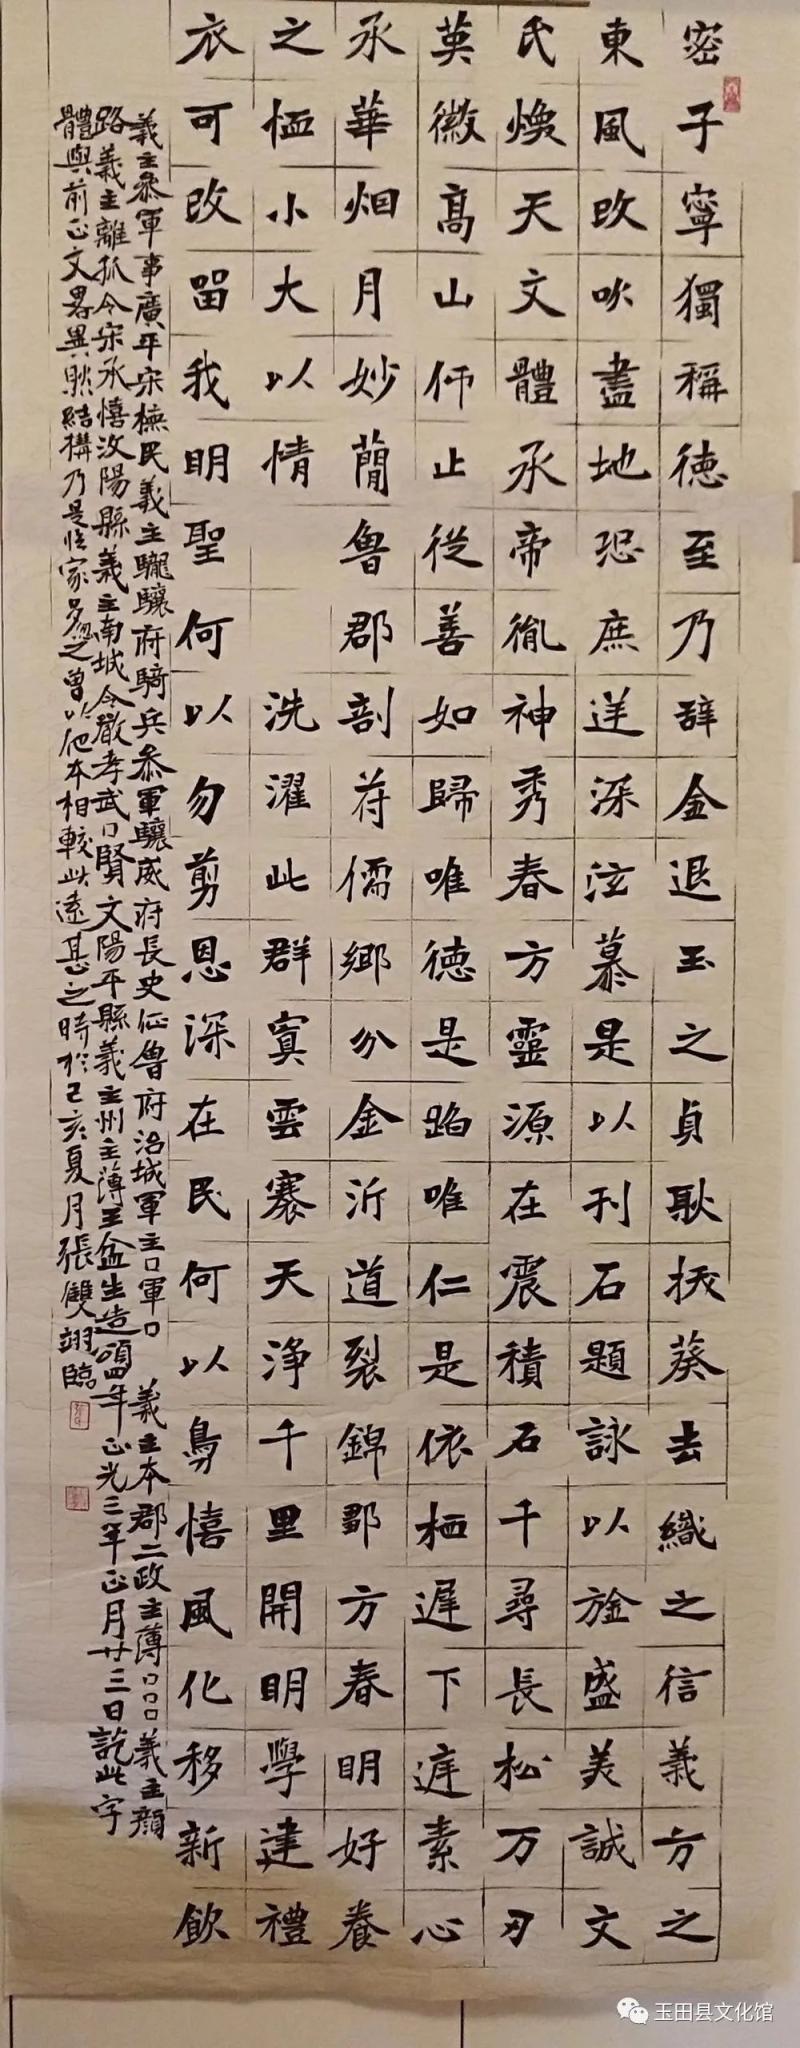 密子寧獨稱德至乃辞金退玉之貞耿抚葵去織之信義方之
東風改吹盡地恐庶遅深泣慕是以刊石題詠以旌盛美誠文
氏焕天文體承帝胤神秀春方靈源在震積石千尋長松万刃
英徽髙山仰止從善如歸唯德是蹈唯仁是依栖遅下庭素心
承華烟月妙蕳魯郡剖苻儒鄉分金沂道裂錦鄒方春明好養
之恤小大以情 洗濯此群寞雲褰天净千里開明學建禮
衣可改留我明聖何以勿剪恩深在民何以鳥憘風化移新飲
義主叅軍事廣平宋撫民義主龍驤府騎兵叅軍驤威府長史征魯府治城軍主口軍口 義主本郡二政主薄口口口義主顔
路義主離狐令宋承憘汝陽縣義主南城令嚴孝武口賢文陽平縣義主州主薄王盆生造頌四年正光三年正月廿三日訖此字
體與前正文畧異然結構乃是性家忽之曾以他本相較此遠甚之時於己亥夏月張雙翊臨
玉田县文化馆